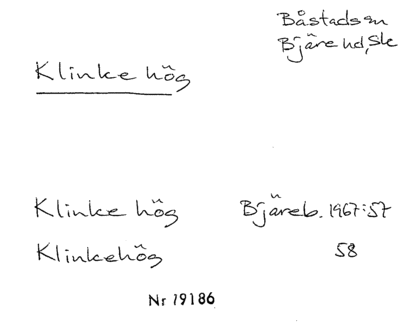 Båstads sn
Bjäre hd, Sk
Klinke hög
Klinke hög Bjäreb. 1967:57
Klinkehög 58
Nr 19186